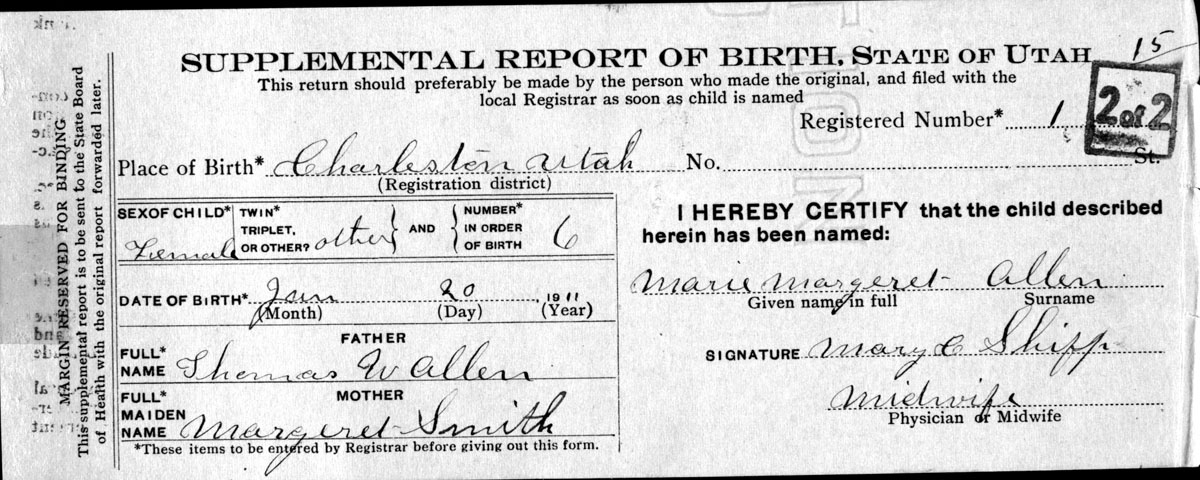 15
SUPPLEMENTAL REPORT OF BIRTH, STATE OF UTAH
This return should preferably be made by the person who made the original, and filed with the
local Registrar as soon as child is named
Registered Number* 1
2 of 2
Place of Birth* Charleston Utah No. St.
(Registration district)
SEX OF CHILD* Female
TWIN* TRIPLET, OR OTHER? other
AND
NUMBER* IN ORDER OF BIRTH 6
DATE OF BIRTH* Jan 20, 1911
(Month) (Day) (Year)
FATHER
FULL* NAME Thomas W Allen
MOTHER
FULL* MAIDEN NAME Margeret Smith
*These items to be entered by Registrar before giving out this form.
I HEREBY CERTIFY that the child described
herein has been named:
Marie Margeret Allen
Given name in full Surname
SIGNATURE Mary C Shipp
Midwife
Physician or Midwife
MARGIN RESERVED FOR BINDING
This supplemental report is to be sent to the State Board
of Health with the original report forwarded later.